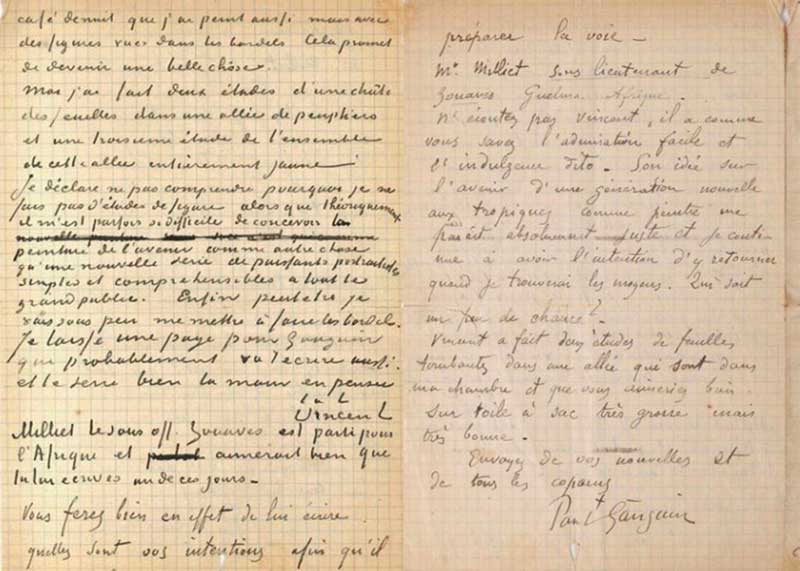 café de nuit que j'ai peint aussi mais avec
des figures vues dans les bordels Cela promet
de devenir une belle chôse.
Moi j'ai fait deux études d'une chûte
des feuilles dans une allée de peupliers
et une troisième étude de l'ensemble
de cette allée entièrement jaune
Je déclare ne pas comprendre pourquoi je ne
fais pas d'études de figure alors que théoriquement
il m'est parfois si difficile de concevoir la
peinture de l'avenir comme autre chose
qu'une nouvelle série de puissants portraitistes
simples et compréhensibles à tout le
grand public. Enfin peutêtre je
vais sous peu me mettre à faire les bordels.
Je laisse une page pour Gauguin
qui probablement va t'écrire aussi.
et te serre bien la main en pensée
t. à t.
Vincent
Milliet le sous off. Zouaves est parti pour
l'Afrique et aimerait bien que
tu lui écrives un de ces jours -
Vous ferez bien en effet de lui écrire
quelles sont vos intentions afin qu'il
préparer la voie -
Mr Milliet sous lieutenant de
Zouaves Guelma. Afrique.
N'écoutez pas Vincent, il a comme
vous savez l'admiration facile et
l'indulgence dito - Son idée sur
l'avenir d'une génération nouvelle
aux tropiques comme peintre me
parait absolument juste et je conti-
nue à avoir l'intention d'y retourner
quand je trouverai les moyens. Qui sait
un peu de chance?
Vincent a fait deux études de feuilles
tombantes dans une allée qui sont dans
ma chambre et que vous aimeriez bien.
Sur toile à sac très grosse mais
très bonne -
Envoyez de vos nouvelles et
de tous les copains
Paul Gauguin